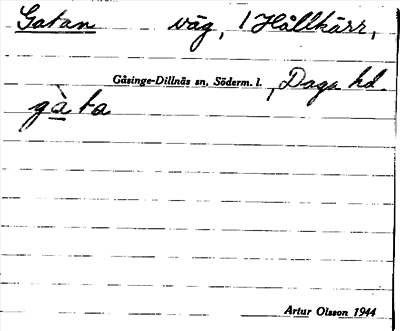 Gatan väg, i Hållkärr,
Gåsinge-Dillnäs sn, Söderm. l., Daga hd.
gàta
Artur Olsson 1944